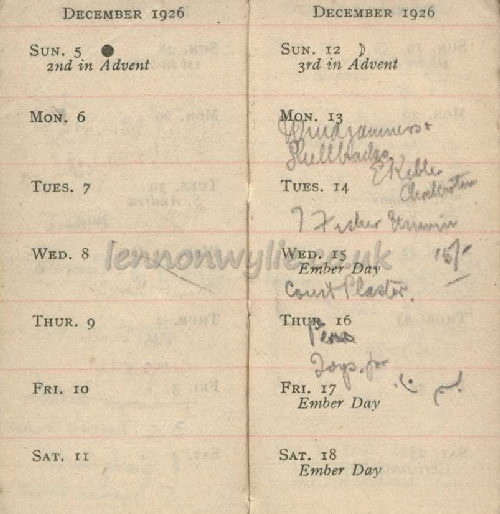 DECEMBER 1926
SUN. 5
2nd in Advent
MON. 6
TUES. 7
WED. 8
THUR. 9
FRI. 10
SAT. 11
DECEMBER 1926
SUN. 12
3rd in Advent
MON. 13
Windjammers &
Shellbacks
E Keble
Chatterton
TUES. 14
T Fisher Unwin
WED. 15
15/-
Ember Day
Court Plaster.
THUR. 16
Pens
Toys for
FRI. 17
Ember Day
SAT. 18
Ember Day
lennonwylie.co.uk